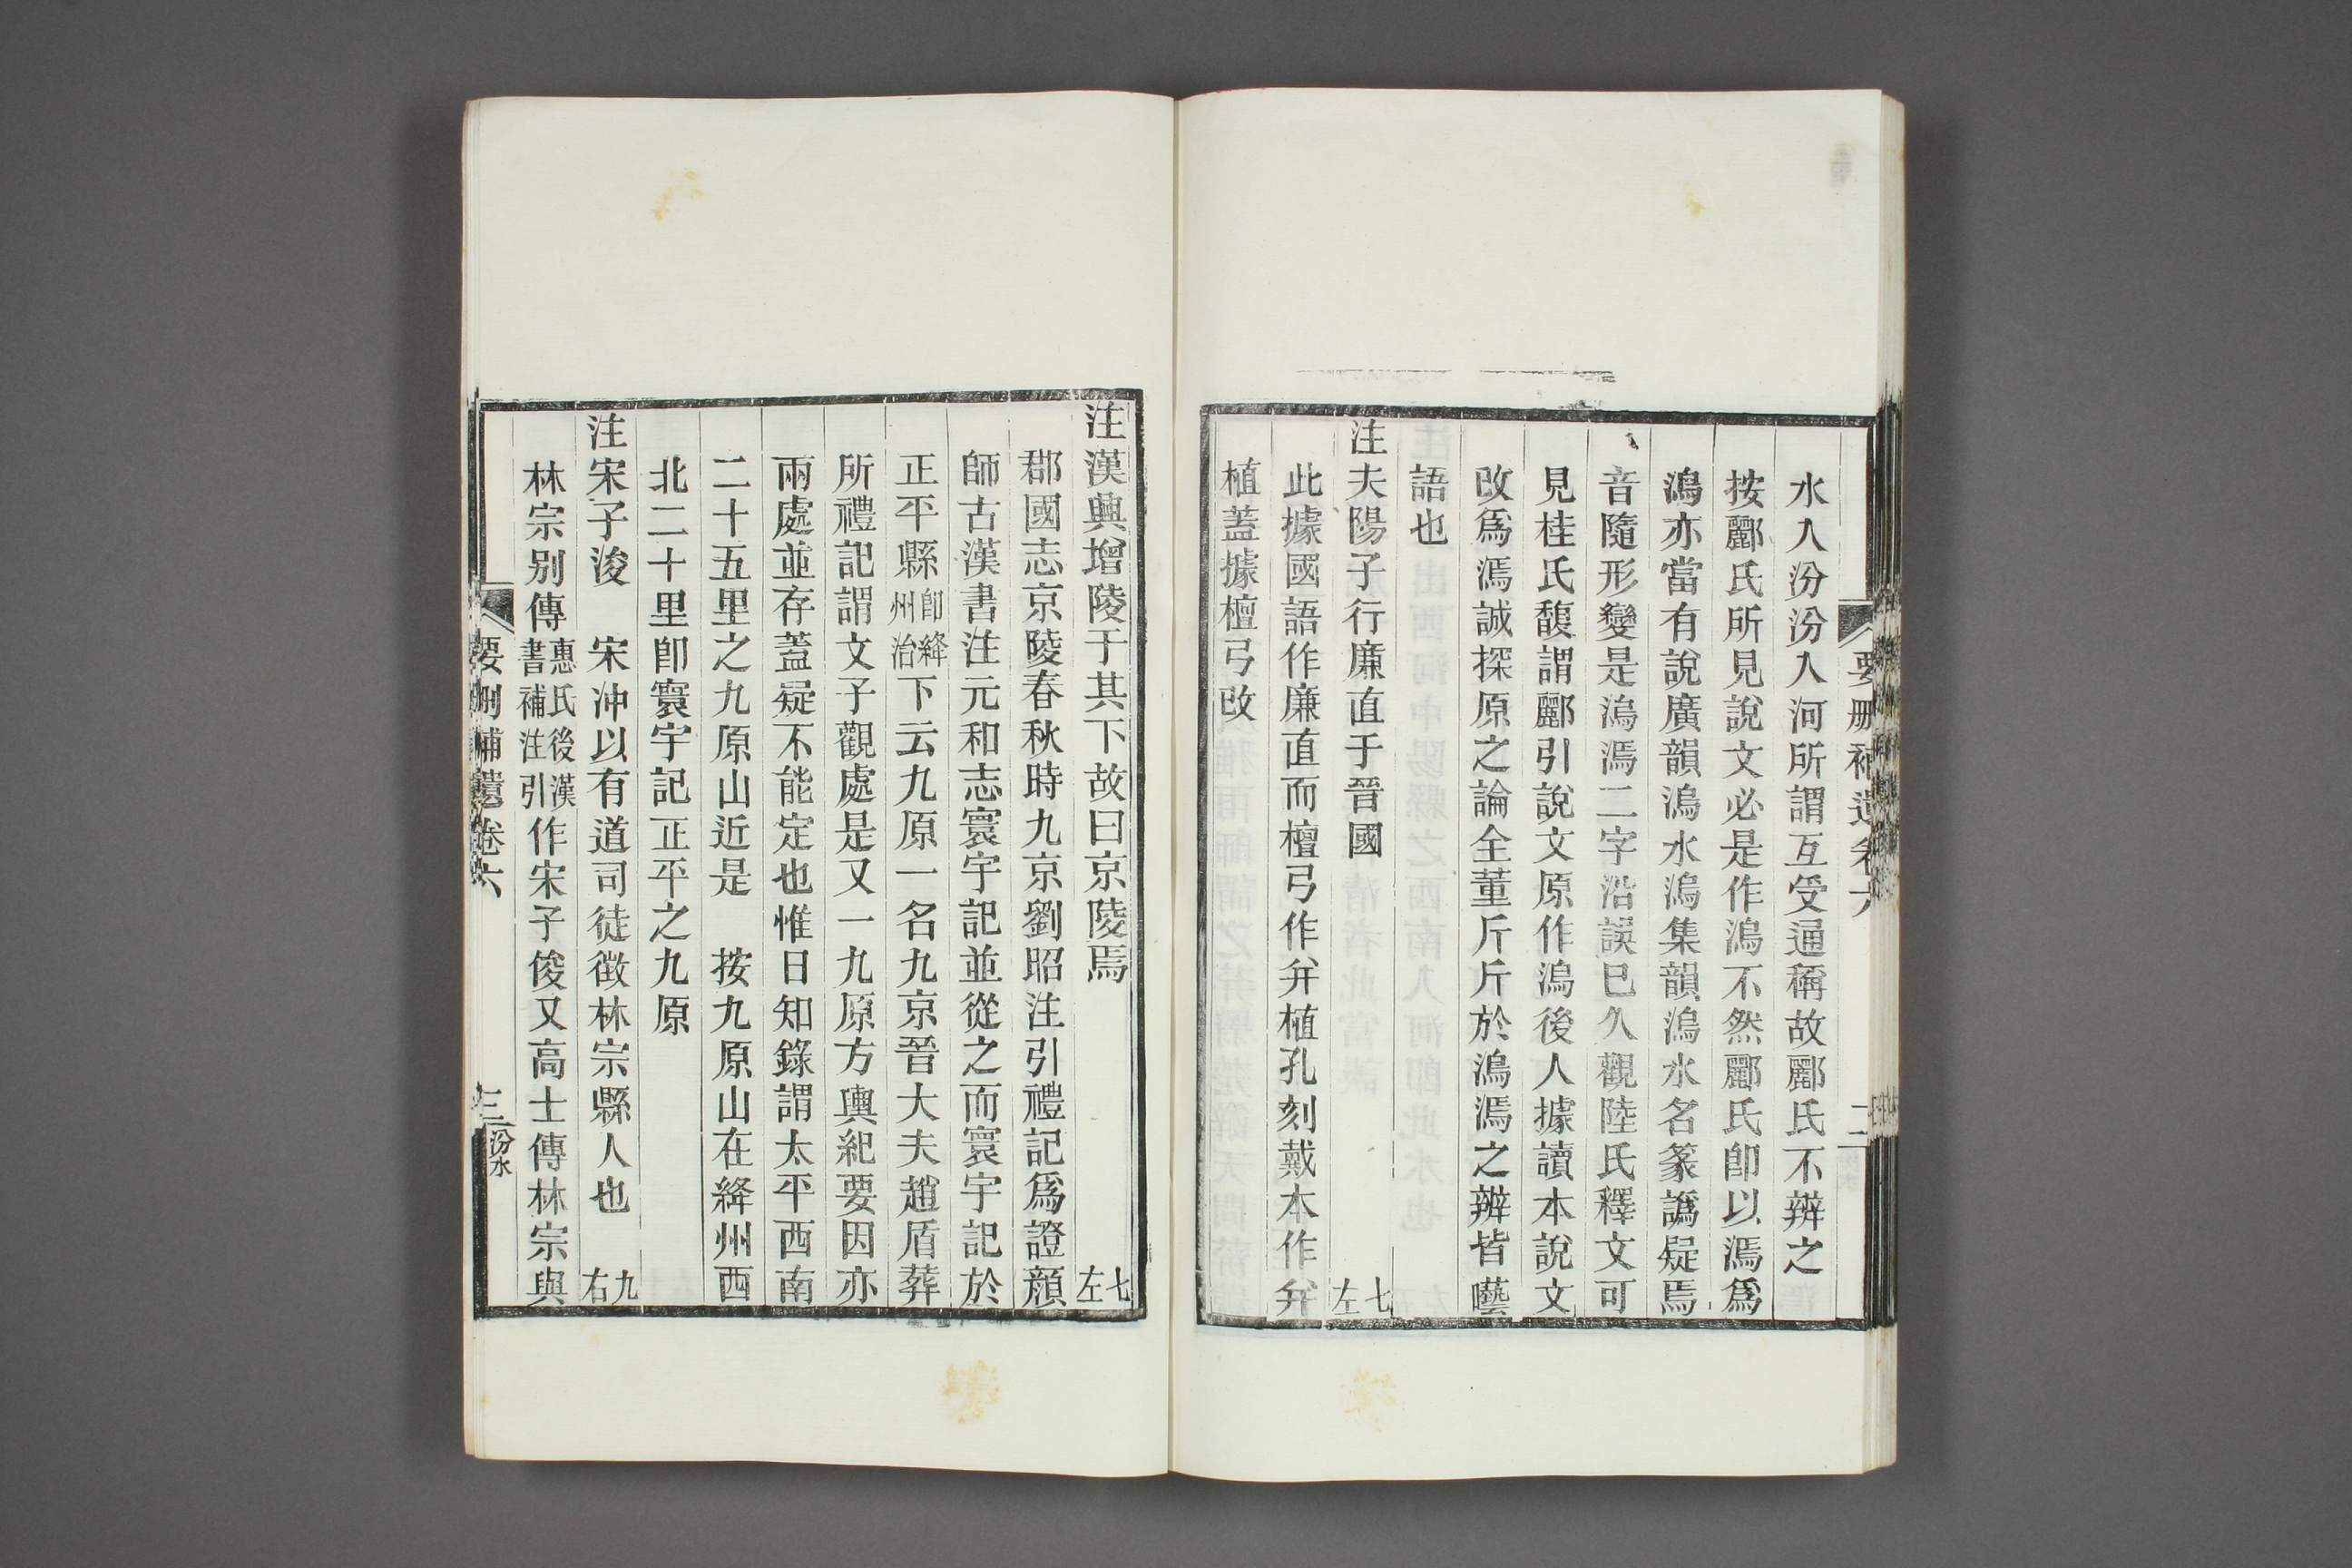 要刪補遺卷六
二
水入汾汾入河所謂互受通稱故酈氏不辨之
按酈氏所見說文必是作潟不然酈氏卽以漹爲
潟亦當有說廣韻潟水潟集韻潟水名篆譌疑焉
音隨形變是潟漹二字沿誤已久觀陸氏釋文可
見桂氏馥謂酈引說文原作潟後人據讀本說文
改爲漹誠探原之論全董斤斤於潟漹之辨皆囈
語也
注夫陽子行廉直于晉國 七左
此據國語作廉直而檀弓作幷植孔刻戴本作幷
植蓋據檀弓改
注漢興增陵于其下故曰京陵焉 七左
郡國志京陵春秋時九京劉昭注引禮記爲證顏
師古漢書注元和志寰宇記並從之而寰宇記於
正平縣卽絳州治下云九原一名九京晉大夫趙盾葬
所禮記謂文子觀處是又一九原方輿紀要因亦
兩處並存蓋疑不能定也惟日知錄謂太平西南
二十五里之九原山近是 按九原山在絳州西
北二十里卽寰宇記正平之九原
注宋子浚 宋沖以有道司徒徵林宗縣人也 九右
林宗別傳惠氏後漢書補注引作宋子俊又高士傳林宗與
要刪補遺卷六
三
汾水